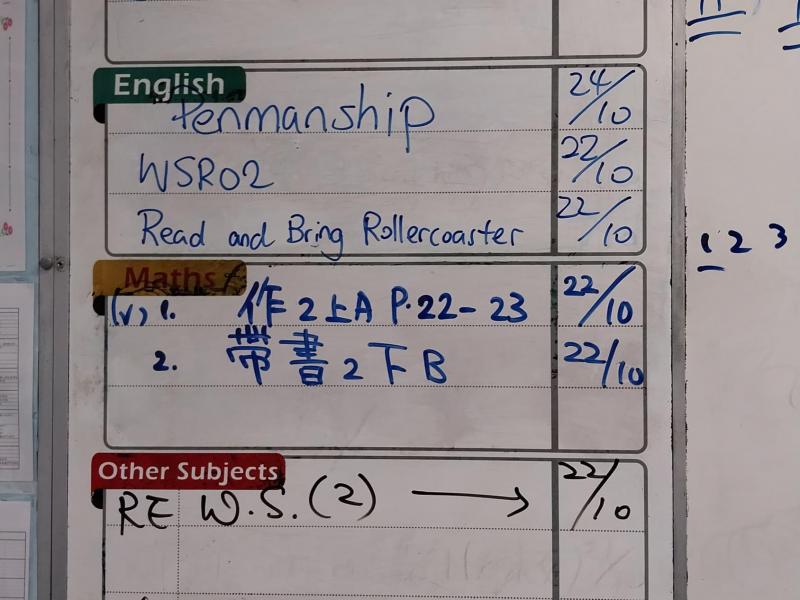 English
Penmanship 24/10
WSR02 22/10
Read and Bring Rollercoaster 22/10
Maths
(v) 1. 作2上A P.22-23 22/10
2. 帶書2下B 22/10
Other Subjects
RE W.S. (2) → 22/10
1 2 3